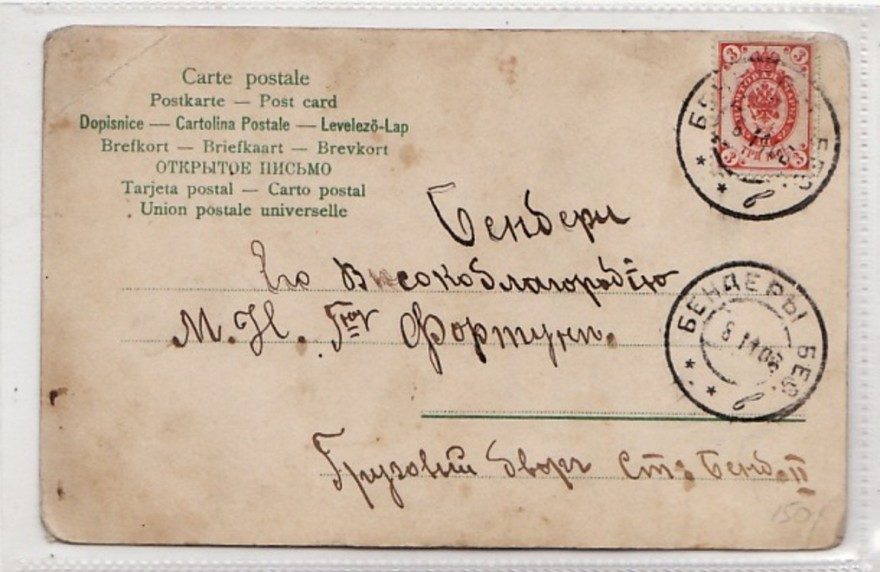 Carte postale
Postkarte — Post card
Dopisnice — Cartolina Postale — Levelező-Lap
Brefkort — Briefkaart — Brevkort
ОТКРЫТОЕ ПИСЬМО
Tarjeta postal — Carto postal
Union postale universelle
3 3
3 3
БЕНДЕРЫ БЕС.
Бендеры
Его Высокоблагородію
М. Н. Фортуни.
БЕНДЕРЫ БЕС.
Грузовый дворъ Ст. Бенд. II
150